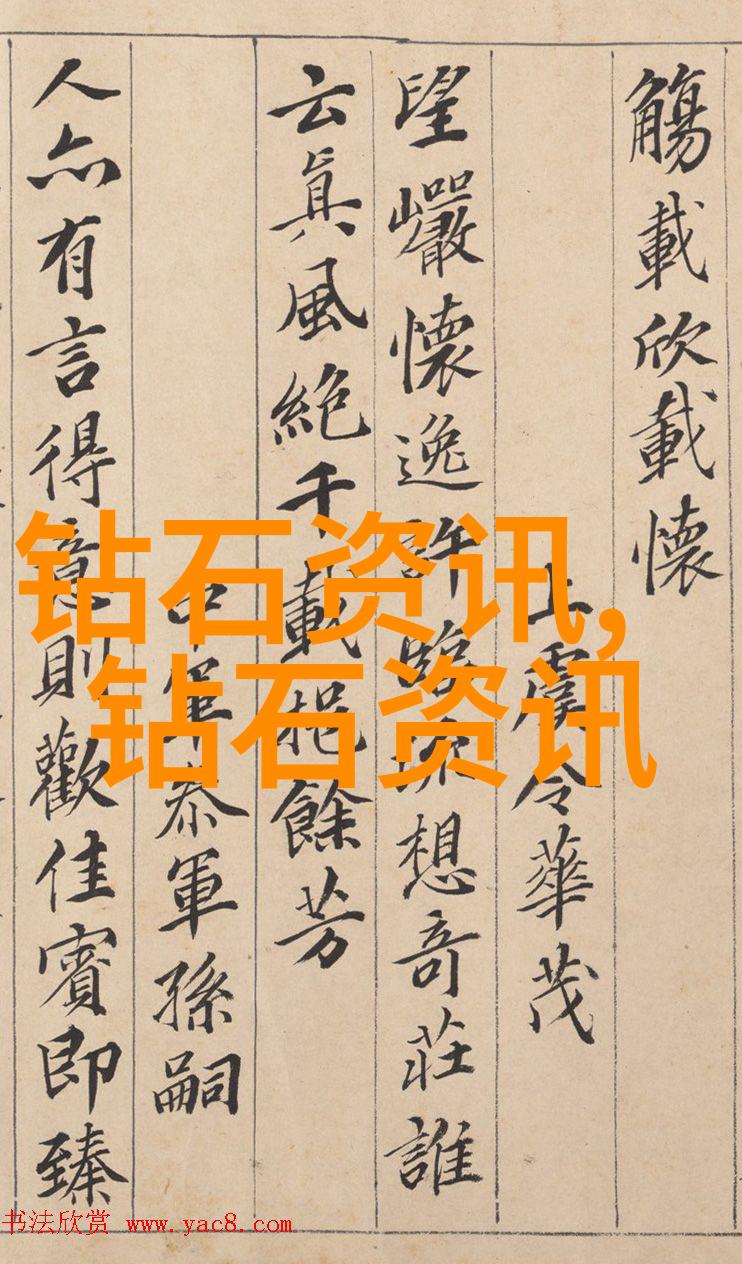 觴載欣載懷
上虞令華茂
望巖懷逸許臨流想奇莊誰
云眞風絕千載挹餘芳
叅軍孫嗣
人亦有言得意則歡佳賓即臻
钻石资讯,
钻石资讯
书法欣赏 www.yac8.com